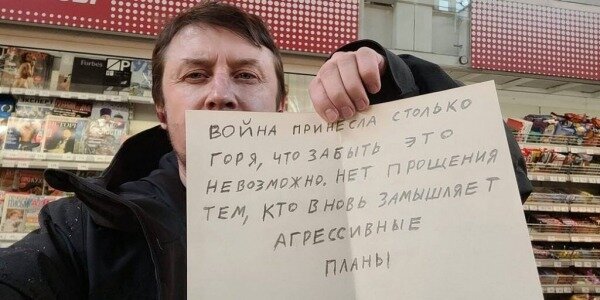 Forbes
ВОЙНА ПРИНЕСЛА СТОЛЬКО
ГОРЯ, ЧТО ЗАБЫТЬ ЭТО
НЕВОЗМОЖНО. НЕТ ПРОЩЕНИЯ
ТЕМ, КТО ВНОВЬ ЗАМЫШЛЯЕТ
АГРЕССИВНЫЕ
ПЛАНЫ